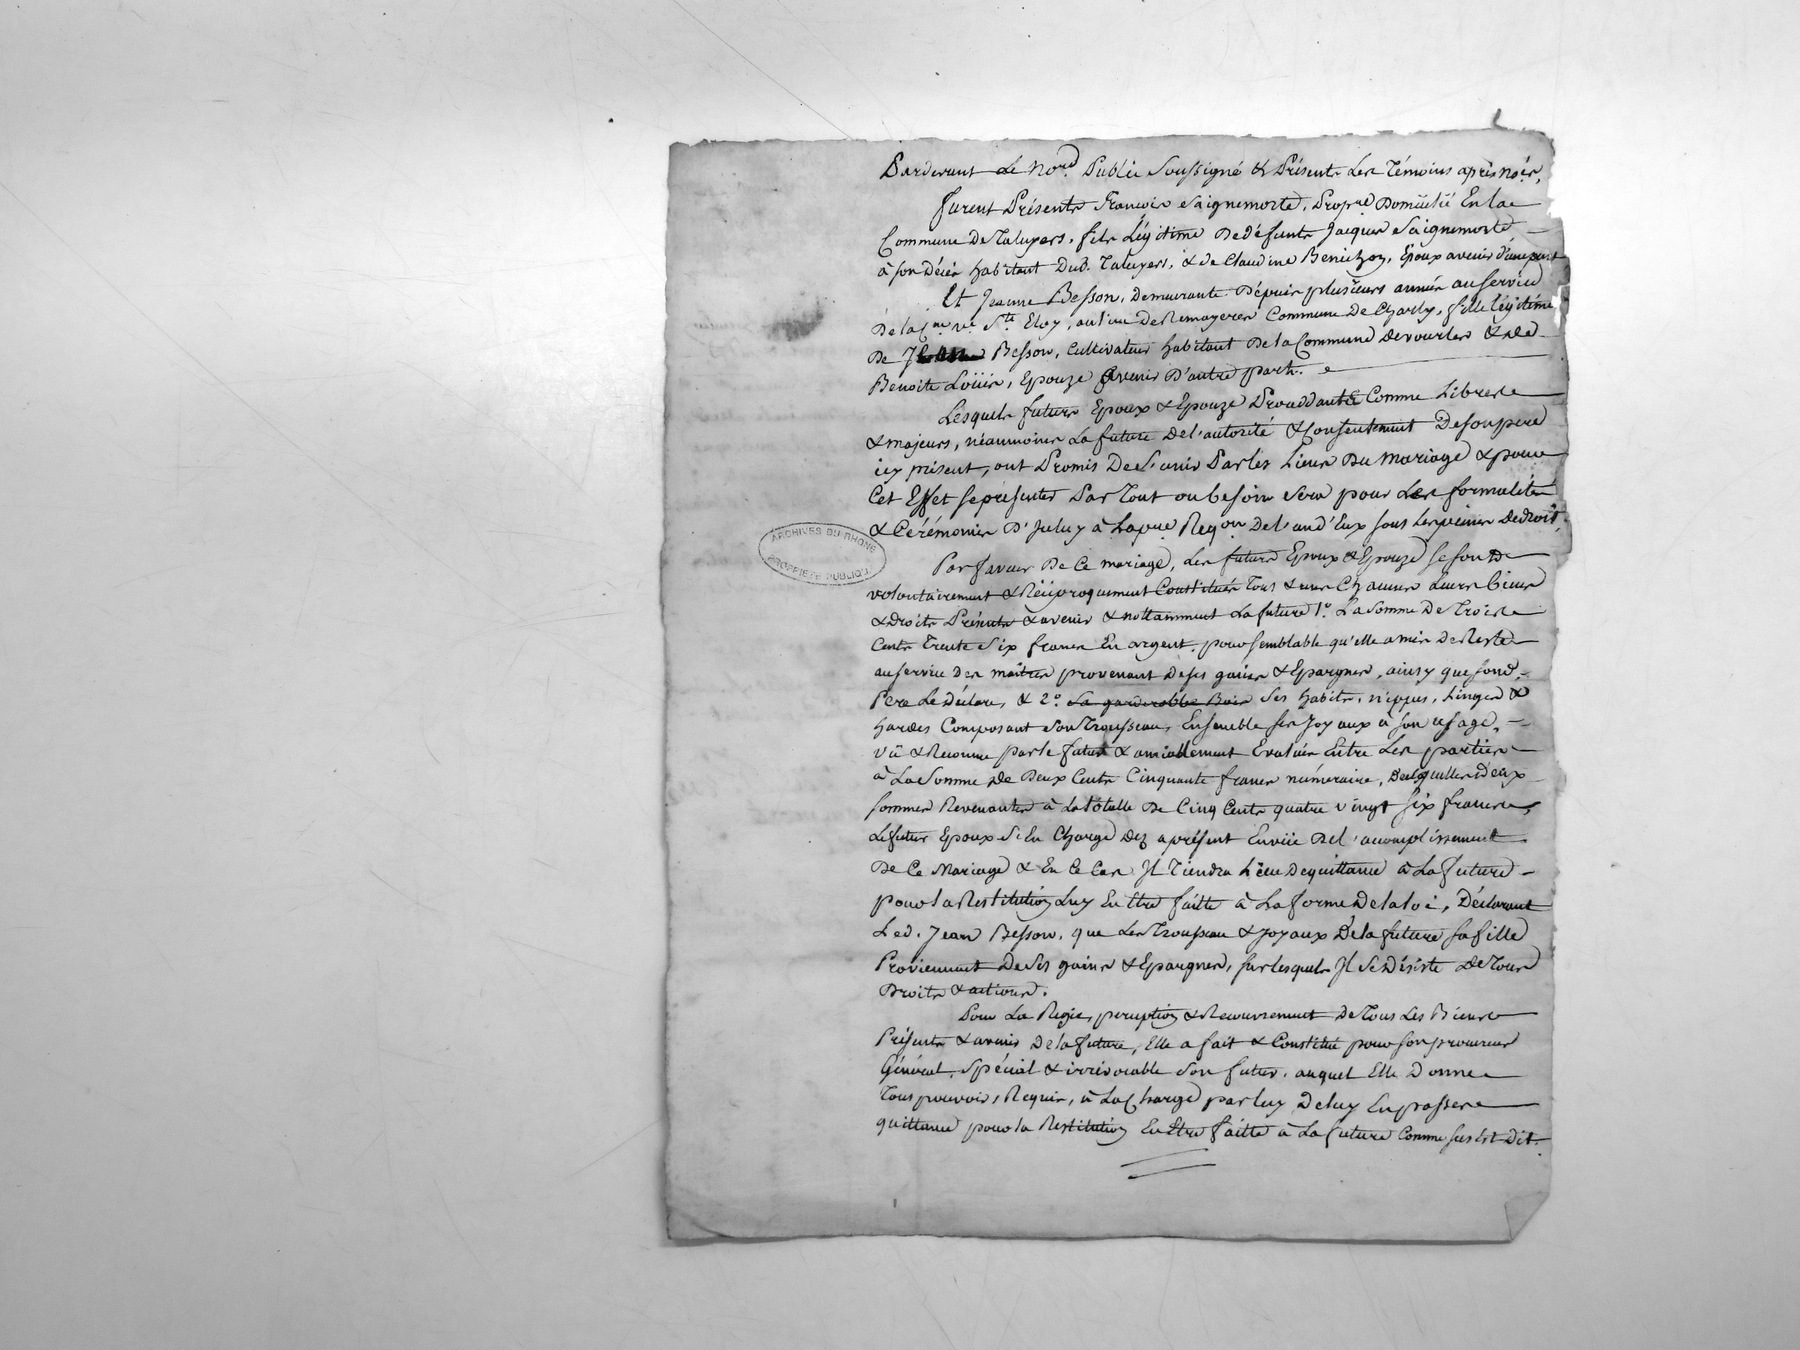 Pardevant Le No.re Public Soussigné & Présents Les Témoins après nés,
furent Présents François Saignemorte, Prop.re Domicilié En la
Commune De Taluyers, fils Légitime De défunts Jacques Saignemorte
à son Décès habitant Dud. Taluyers, & de Claudine Benichon, Epoux avenir d'une part
Et Jeanne Besson, demeurante Dépuis plusieurs années au service
De la C.ne v.e S.te Eloy, au lieu De Remoyeres Commune De Charly, fille légitime
De Besson, Cultivateur habitant De la Commune de vourles & de
Benoite Loüis, Epouze Avenir D'autre part.
Lesquels futurs Epoux & Epouze Procédants Comme Libres
& majeurs, néanmoins La future De l'autorité & Consentement De son pere
icy présent, ont Promis De S'unir Par les Liens Du Mariage & pour
Cet Effet se présenter Par Tout ou besoin Sera pour Les formalités
& Cérémonies D'Iceluy à La p.re Req.on De l'un d'Eux sous les peines De droit.
ARCHIVES DU RHÔNE
PROPRIÉTÉ PUBLIQUE
Par faveur De Ce mariage, Les futurs Epoux & Epouze se sont
volontairement & Réciproquement Constitués Tous & uns Chacuns Leurs biens
& droits Présents & avenir & nottamment La future 1.o La Somme De Trois
Cents Trente Six francs En argent, pour semblable qu'elle a mis de Reste
au service des maîtres provenant De ses gains & Epargnes, ainsy que son
Pere Le Déclare, & 2.o La garderobbe Bois Ses habits, nippes, Linges &
hardes Composant Son Trousseau, Ensemble ses Joyaux à son usage,
Vu & Reconnu par le futur & amiablement Evalués Entre Les parties
à La Somme De Deux Cents Cinquante francs numéraire, Desquelles deux
sommes Revenantes à La totalle De Cinq Cents quatre vingt six francs,
Le futur Epoux S'En Charge Dez aprésent En vüe De l'accomplissement
De Ce Mariage & En Ce Cas Il Tiendra Lieu De quittance à La future
pour la Restitution Luy En Etre faitte à La forme De la loi, Déclarant
Led. Jean Besson, que Les Trousseau & Joyaux De la future sa fille
Proviennent De Ses gains & Epargnes, sur lesquels Il Se Désiste De Tous
Droits & actions.
Pour La Regie, perception & Recouvrement De Tous Les Biens
Présents & avenir De la future, Elle a fait & Constitué pour son procureur
Général, Spécial & irrévocable Son futur, auquel Elle Donne
Tous pouvoirs Requis, à La Charge par luy De luy En passer
quittance pour la Restitution En Etre faitte à La future Comme sus Est Dit.